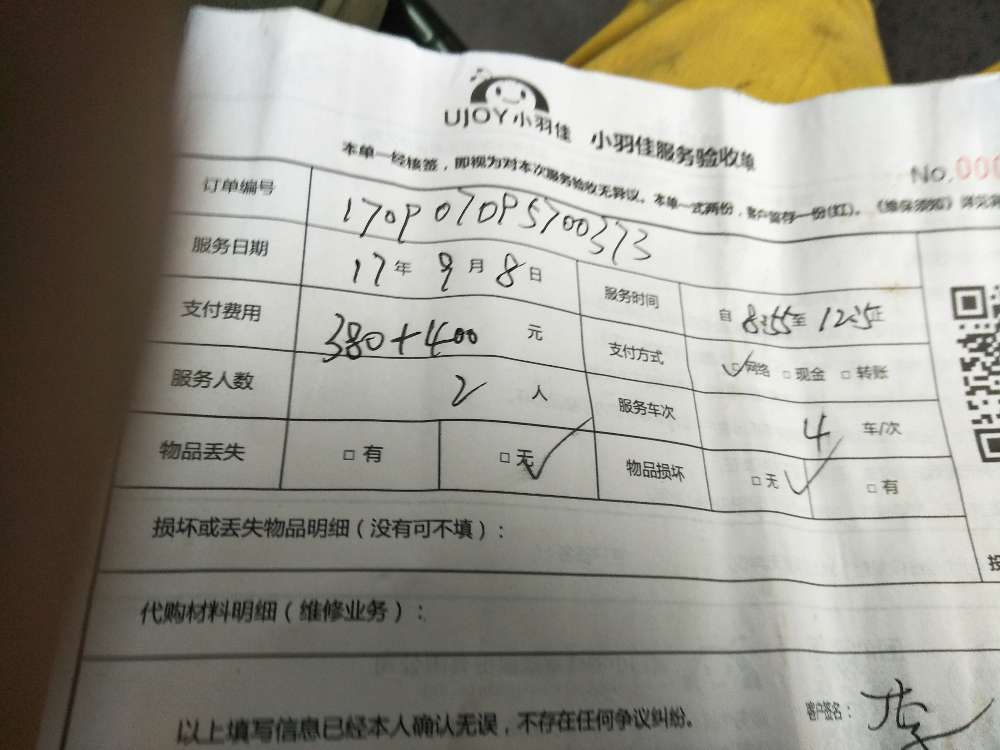 UJOY小羽佳 小羽佳服务验收单
No.000
本单一经核签，即视为对本次服务验收无异议。本单一式两份，客户留存一份(红)。《维保须知》详见
订单编号 170907095700373
服务日期 17年 9月 8日 服务时间 自 8:55至 12:35止
支付费用 380+400 元 支付方式 ☑网络 □现金 □转账
服务人数 2 人 服务车次 4 车/次
物品丢失 □有 □无✓ 物品损坏 □无✓ □有
损坏或丢失物品明细（没有可不填）：
代购材料明细（维修业务）：
以上填写信息已经本人确认无误，不存在任何争议纠纷。
客户签名：